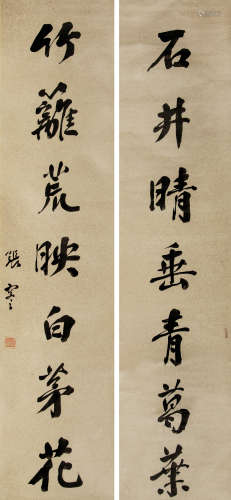 石井晴垂青葛葉
竹籬荒映白茅花
張謇